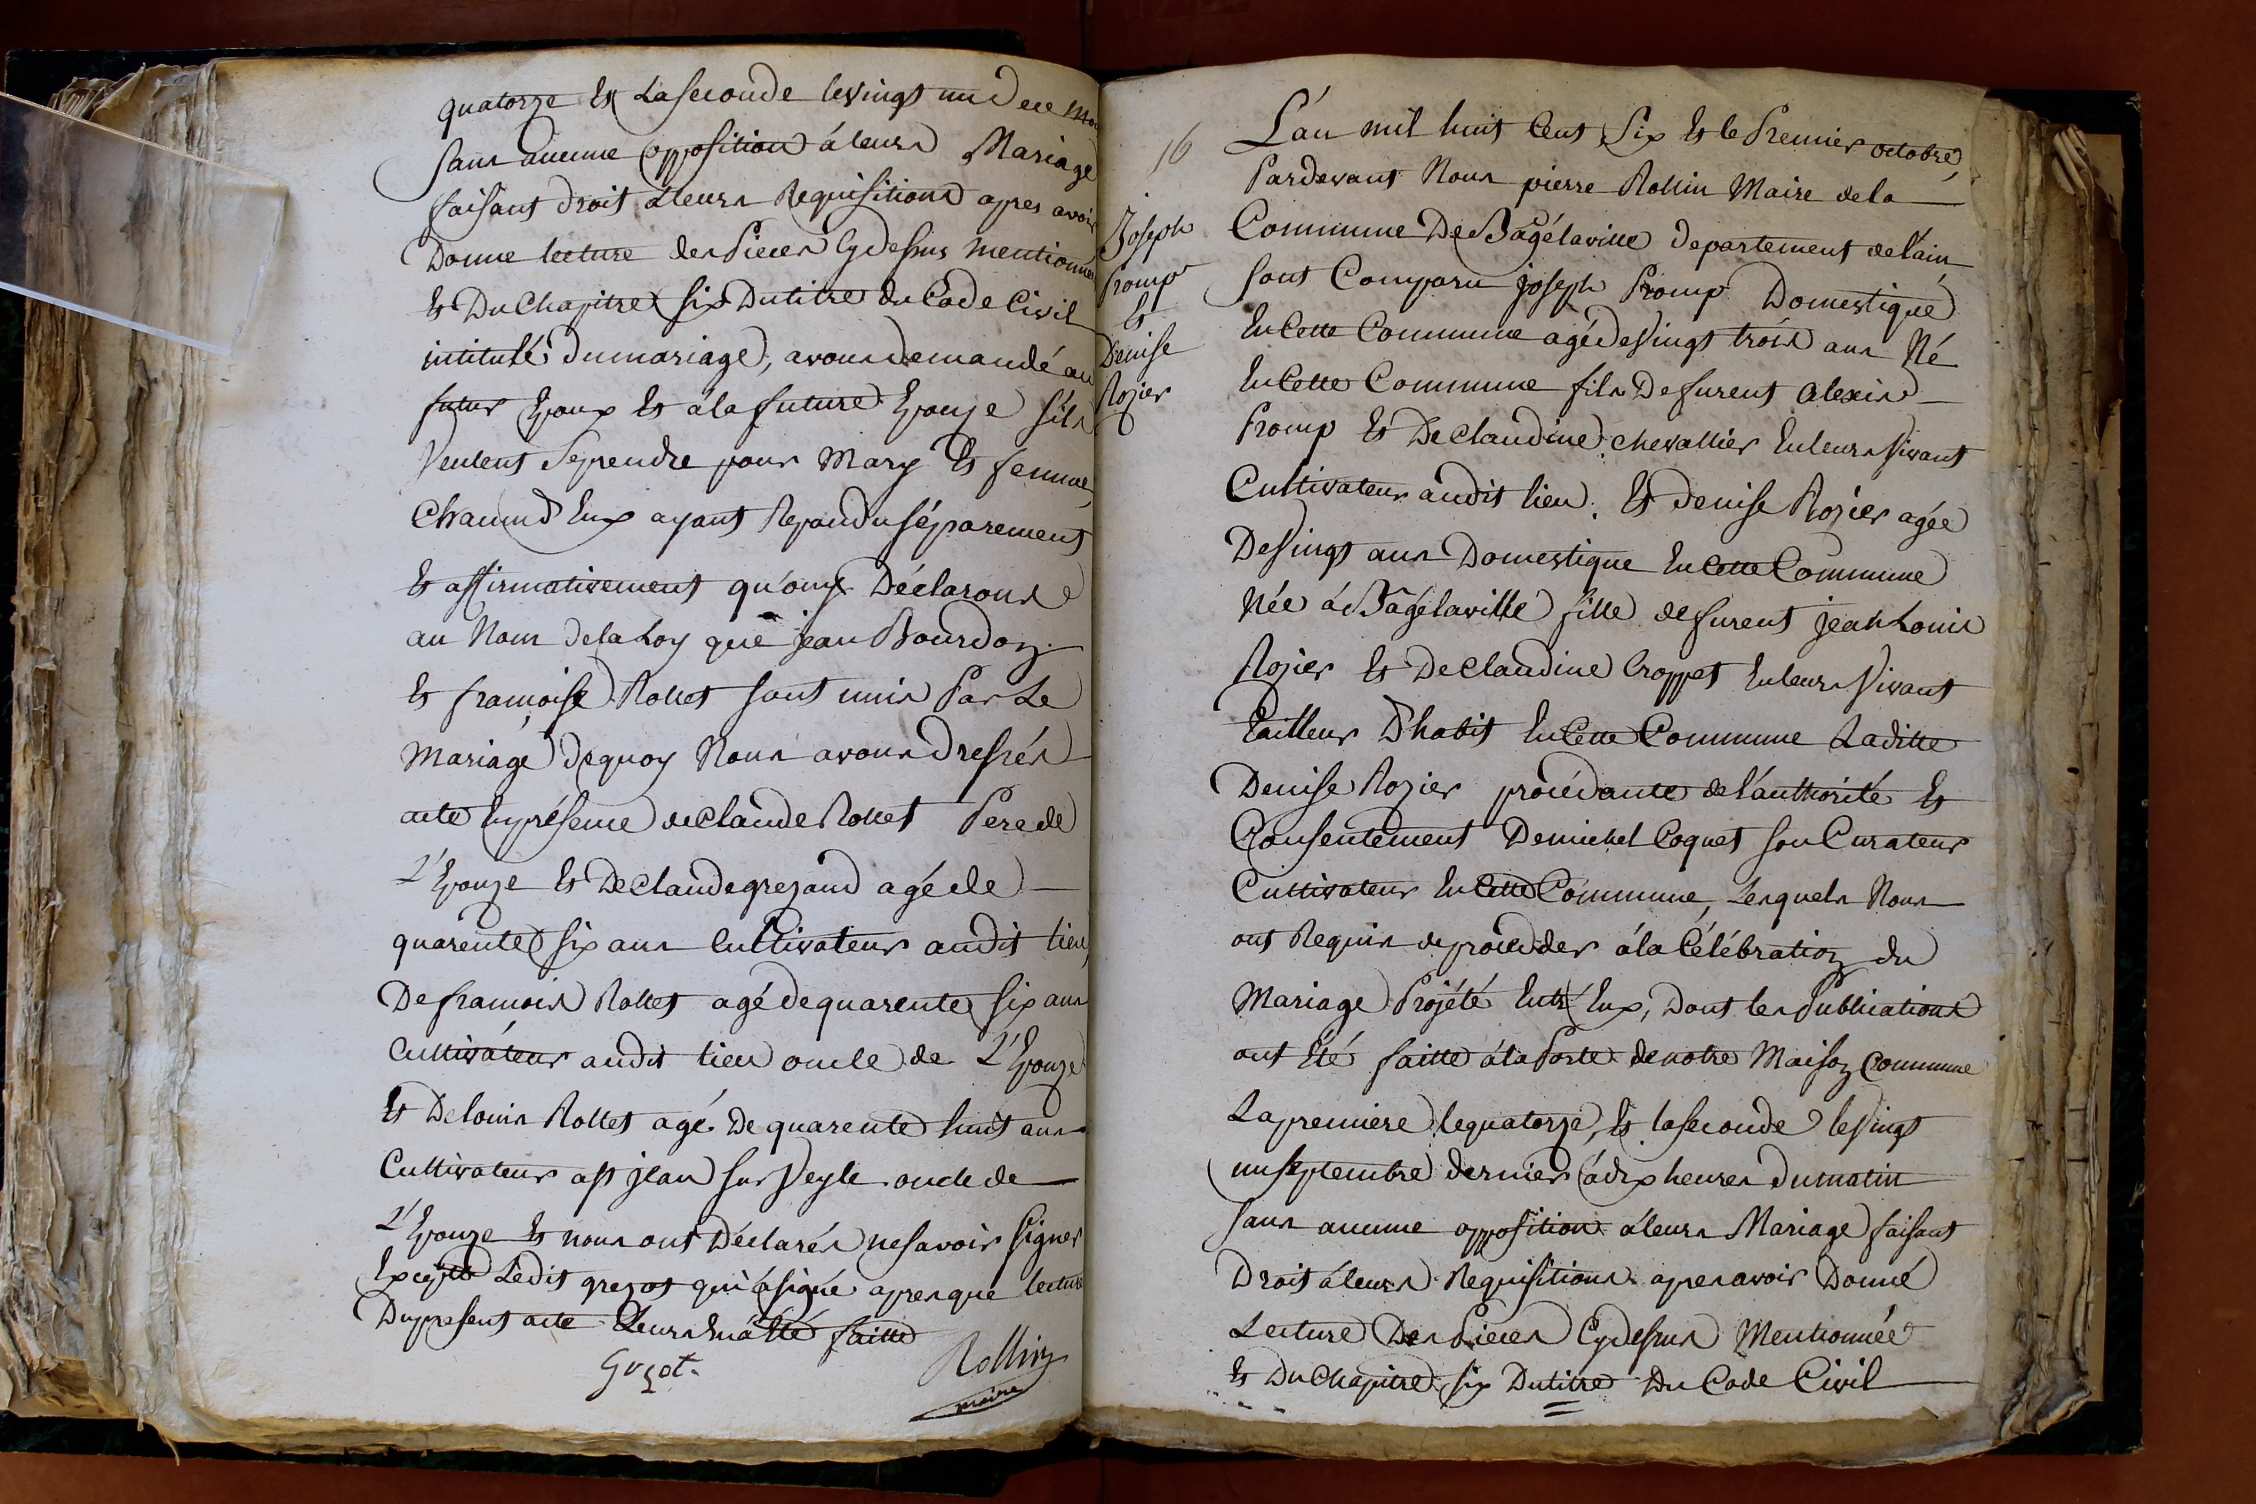 quatorze Et La seconde le vingt un de ce mois
sans aucune opposition á leurs Mariage
faisant droit á leurs Requisitions apres avoir
Donné lecture des Pieces Cy dessus mentionnés
Et Du Chapitre six Du titre du Code Civil
intitulé du mariage, avons demandé au
futur Epoux Et á la future Epouze s'ils
Veulent Se prendre pour Mary Et femme,
Chacund Eux ayant Repondu séparement
Et affirmativement qu'ouy Déclarons
au Nom de la Loy que jean Bourdon
Et françoise Rollet sont unis Par Le
Mariage De quoy Nous avons Dressés
acte En présence de Claude Rollet Pere de
L'Epouze Et De Claude grezaud agé de
quarente six ans Cultivateur audit lieu,
De francois Rollet agé de quarente six ans
Cultivateur audit lieu oncle de L'Epouze
Et De louis Rollet agé De quarente huit ans
Cultivateur a st jean sur Veyle oncle de
L'Epouze Et nous ont Déclarés ne savoir signer
Excepté Ledit grezot qui á signé apres que lecture
Du present acte Leurs En á Eté faitte
Gozot. Rollin
maire
16
Joseph
Promp
Et
Denise
Rozier
L'án mil huit Cent Six Et le Premier octobre,
Pardevant Nous pierre Rollin Maire de la
Commune De Bágélaville departement de l'ain
sont Comparu joseph Promp Domestique
En Cette Commune agé de Vingt trois ans Né
En Cette Commune fils De furent alexis
Promp Et De Claudine chevallier En leurs Vivant
Cultivateur audit lieu. Et denise Rozier agée
De Vingt ans Domestique En Cette Commune
Née á Bágélaville fille de furent jean Louis
Rozier Et De Claudine Croppet En leurs Vivant
tailleur D'habit En Cette Commune Laditte
Denise Rozier procédante de l'authorité Et
Consentement De michel Coquet son Curateur
Cultivateur En Cette Commune, Lesquels Nous
ont Requis de proceder á la Célébration du
Mariage Projété Entr'Eux, Dont les Publications
ont Eté faitte á la Porte de notre Maison Commune
La premiere le quatorze, Et la seconde le Vingt
un septembre dernier á dix heures du matin
sans aucune opposition á leurs Mariage faisant
Droit á leurs Requisitions apres avoir Donné
Lecture Des Pieces Cy dessus Mentionnée
Et Du Chapitre six Du titre Du Code Civil